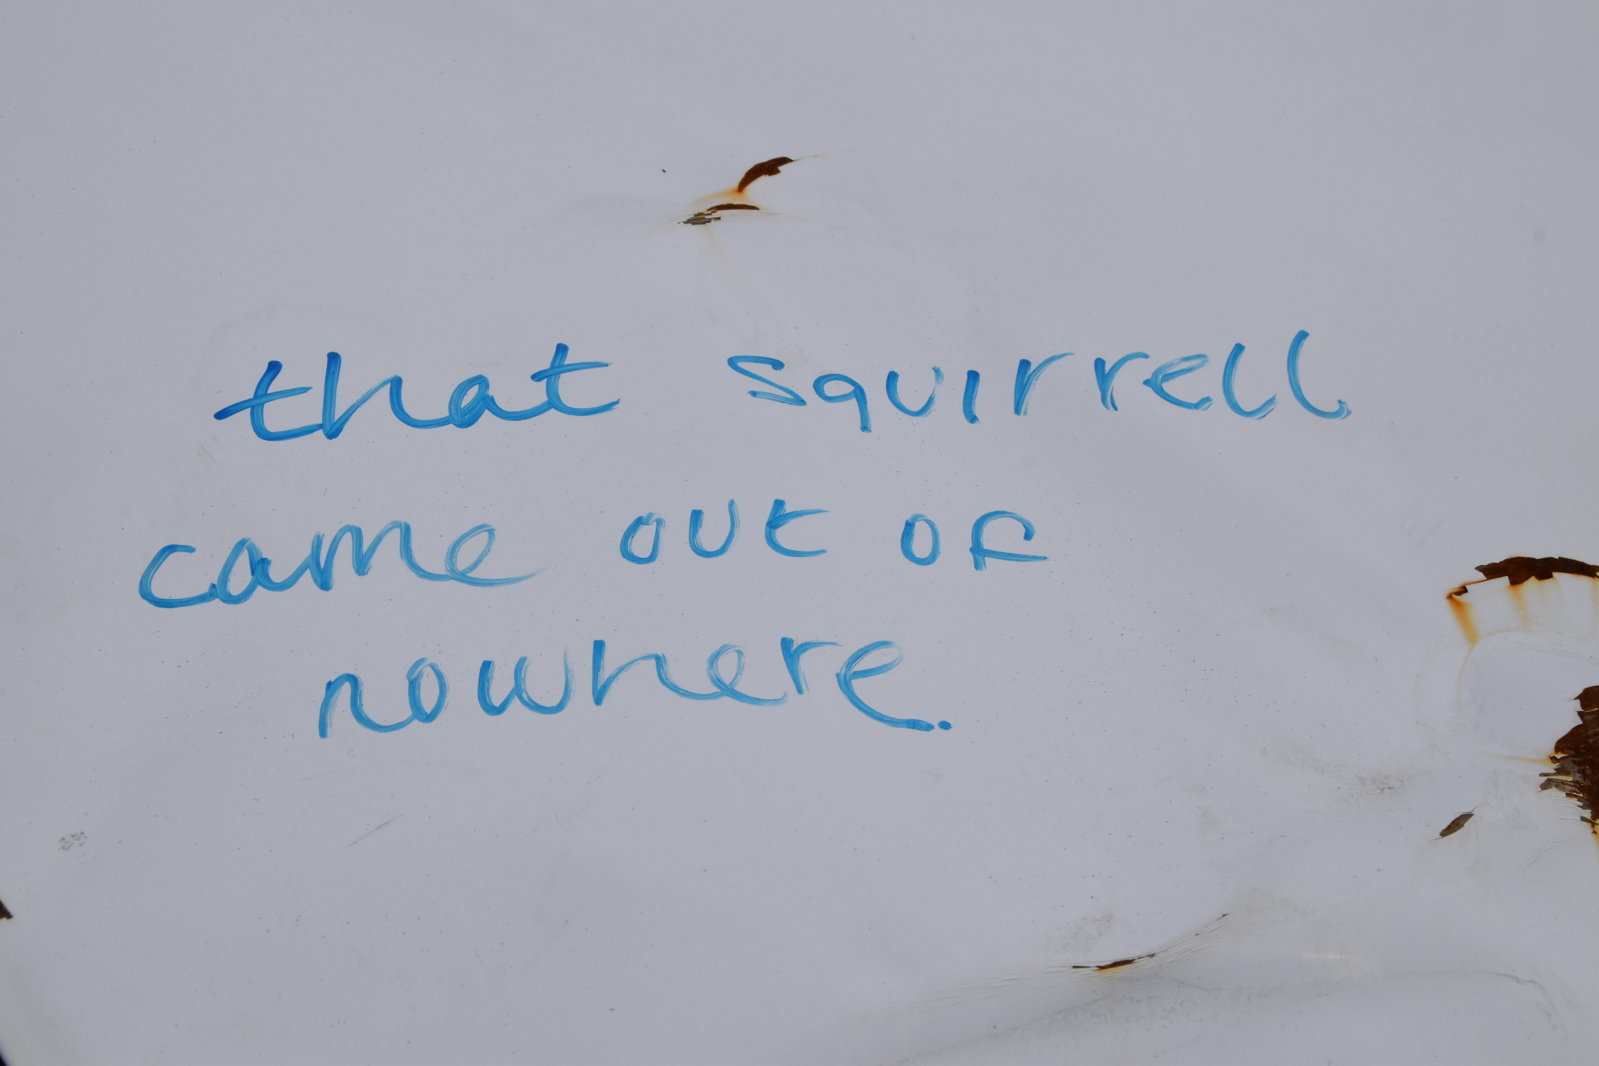 that squirrell
came out of
nowhere.